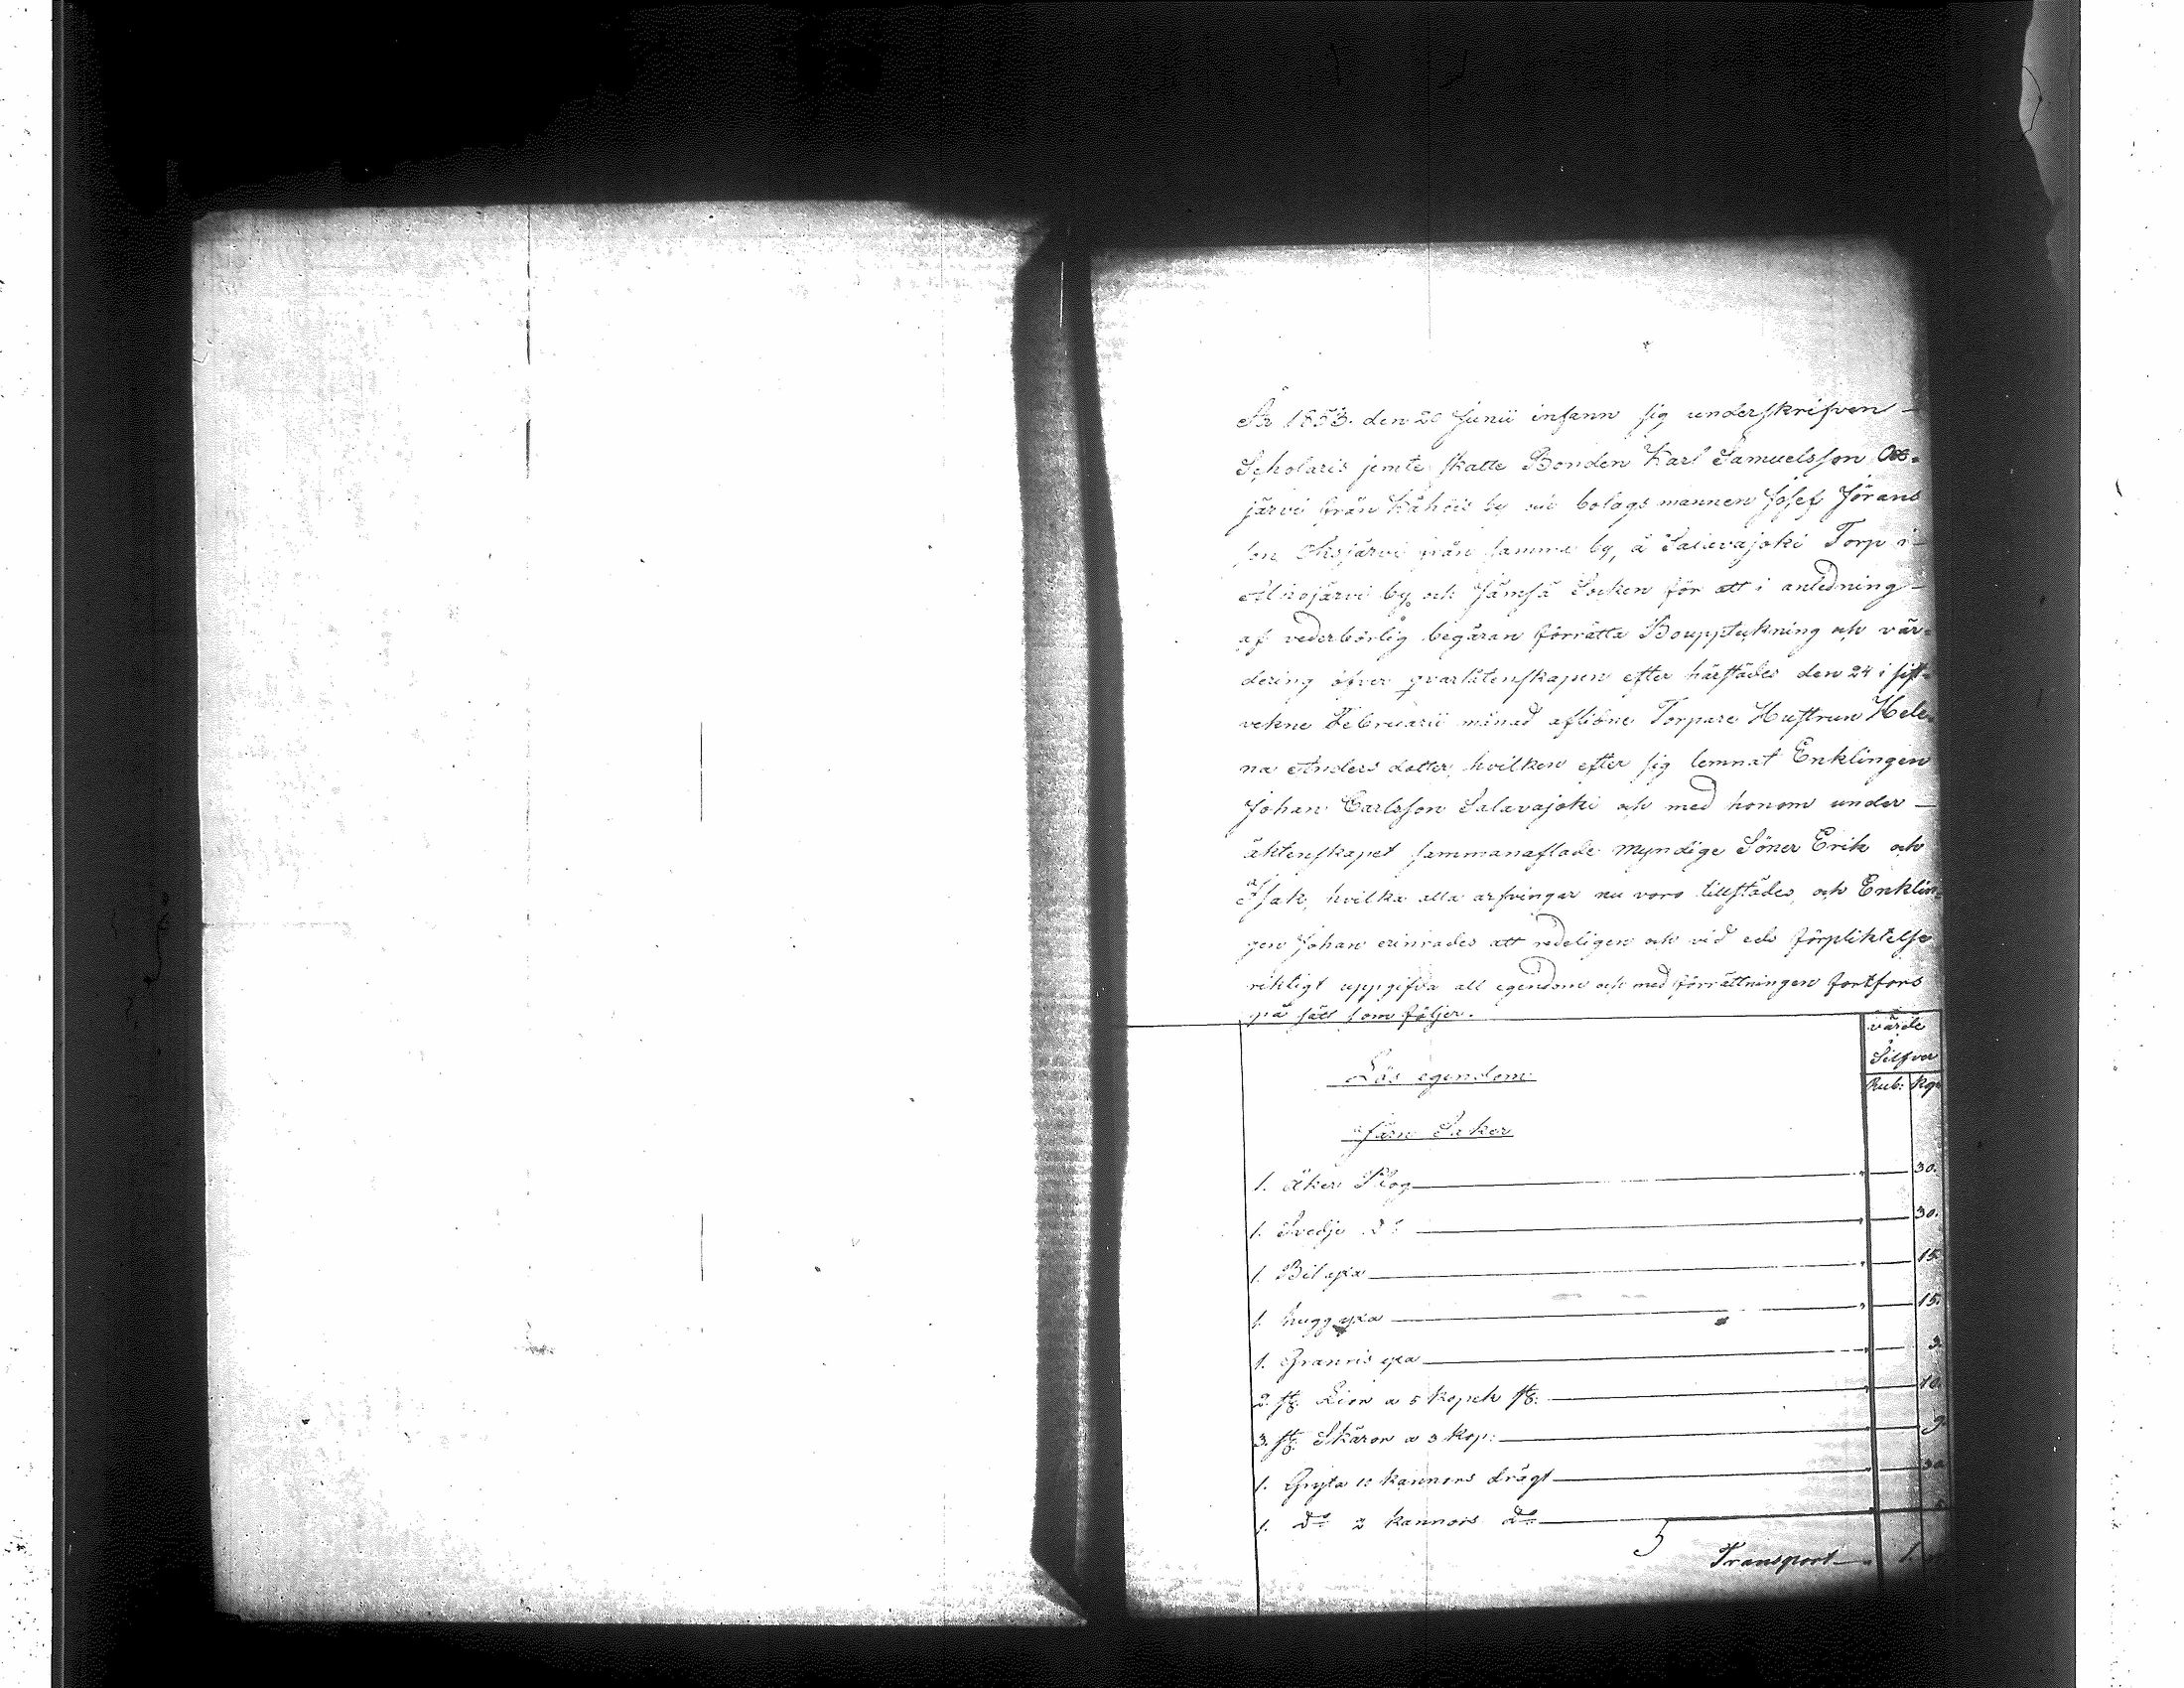 År 1853. den 20 Junii infann sig underskrifven
Scholaris jemte skatte Bonden Karl Samuelsson
järvi från Kähöis by och bolags mannen Josef Jörans
son från samma by, å Salavajoki Torp i
by och Jämsä Socken för att i anledning
af vederbörlig begäran förrätta Bouppteckning och vär-
dering öfver qvarlåtenskapen efter härstädes den 24 i sist-
vekne Februarii månad aflidne Torpare Hustrun Hele-
na Anders dotter, hvilken efter sig lemnat Enklingen
Johan Carlsson Salavajoki och med honom under
äktenskapet sammanaflade myndige Söner Erik och
Isak, hvilka alla arfvingar nu voro tillstädes, och Enklin-
gen Johan erinrades att redeligen och vid eds förpliktelse
riktigt uppgifva all egendom och med förrättningen fortfors
på sätt som följer.
värde
Silfver
Rub: Kop
Lös egendom
Järn Saker
1. åker Plog 30.
1. Svedje do 30.
1. Bil yxa 15.
1. hugg yxa 15.
1. Grannis yxa 3.
2. st: Lior a 5 kopek st: 10.
3. st: Skäror a 3 kop: 9
1. Gryta 10 kannors drägt 30
1. do 2 kannors do
Transport 1.